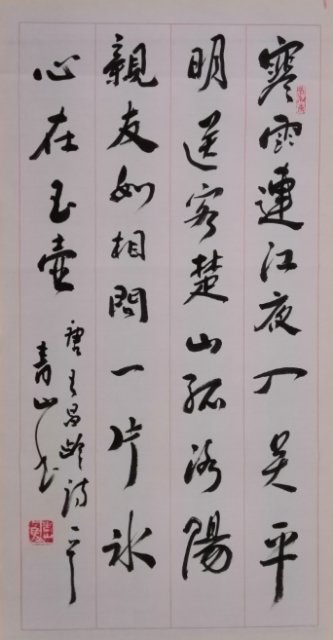 寒雨連江夜入吴平
明送客楚山孤洛陽
親友如相問一片冰
心在玉壺
唐王昌龄诗一首
青山书